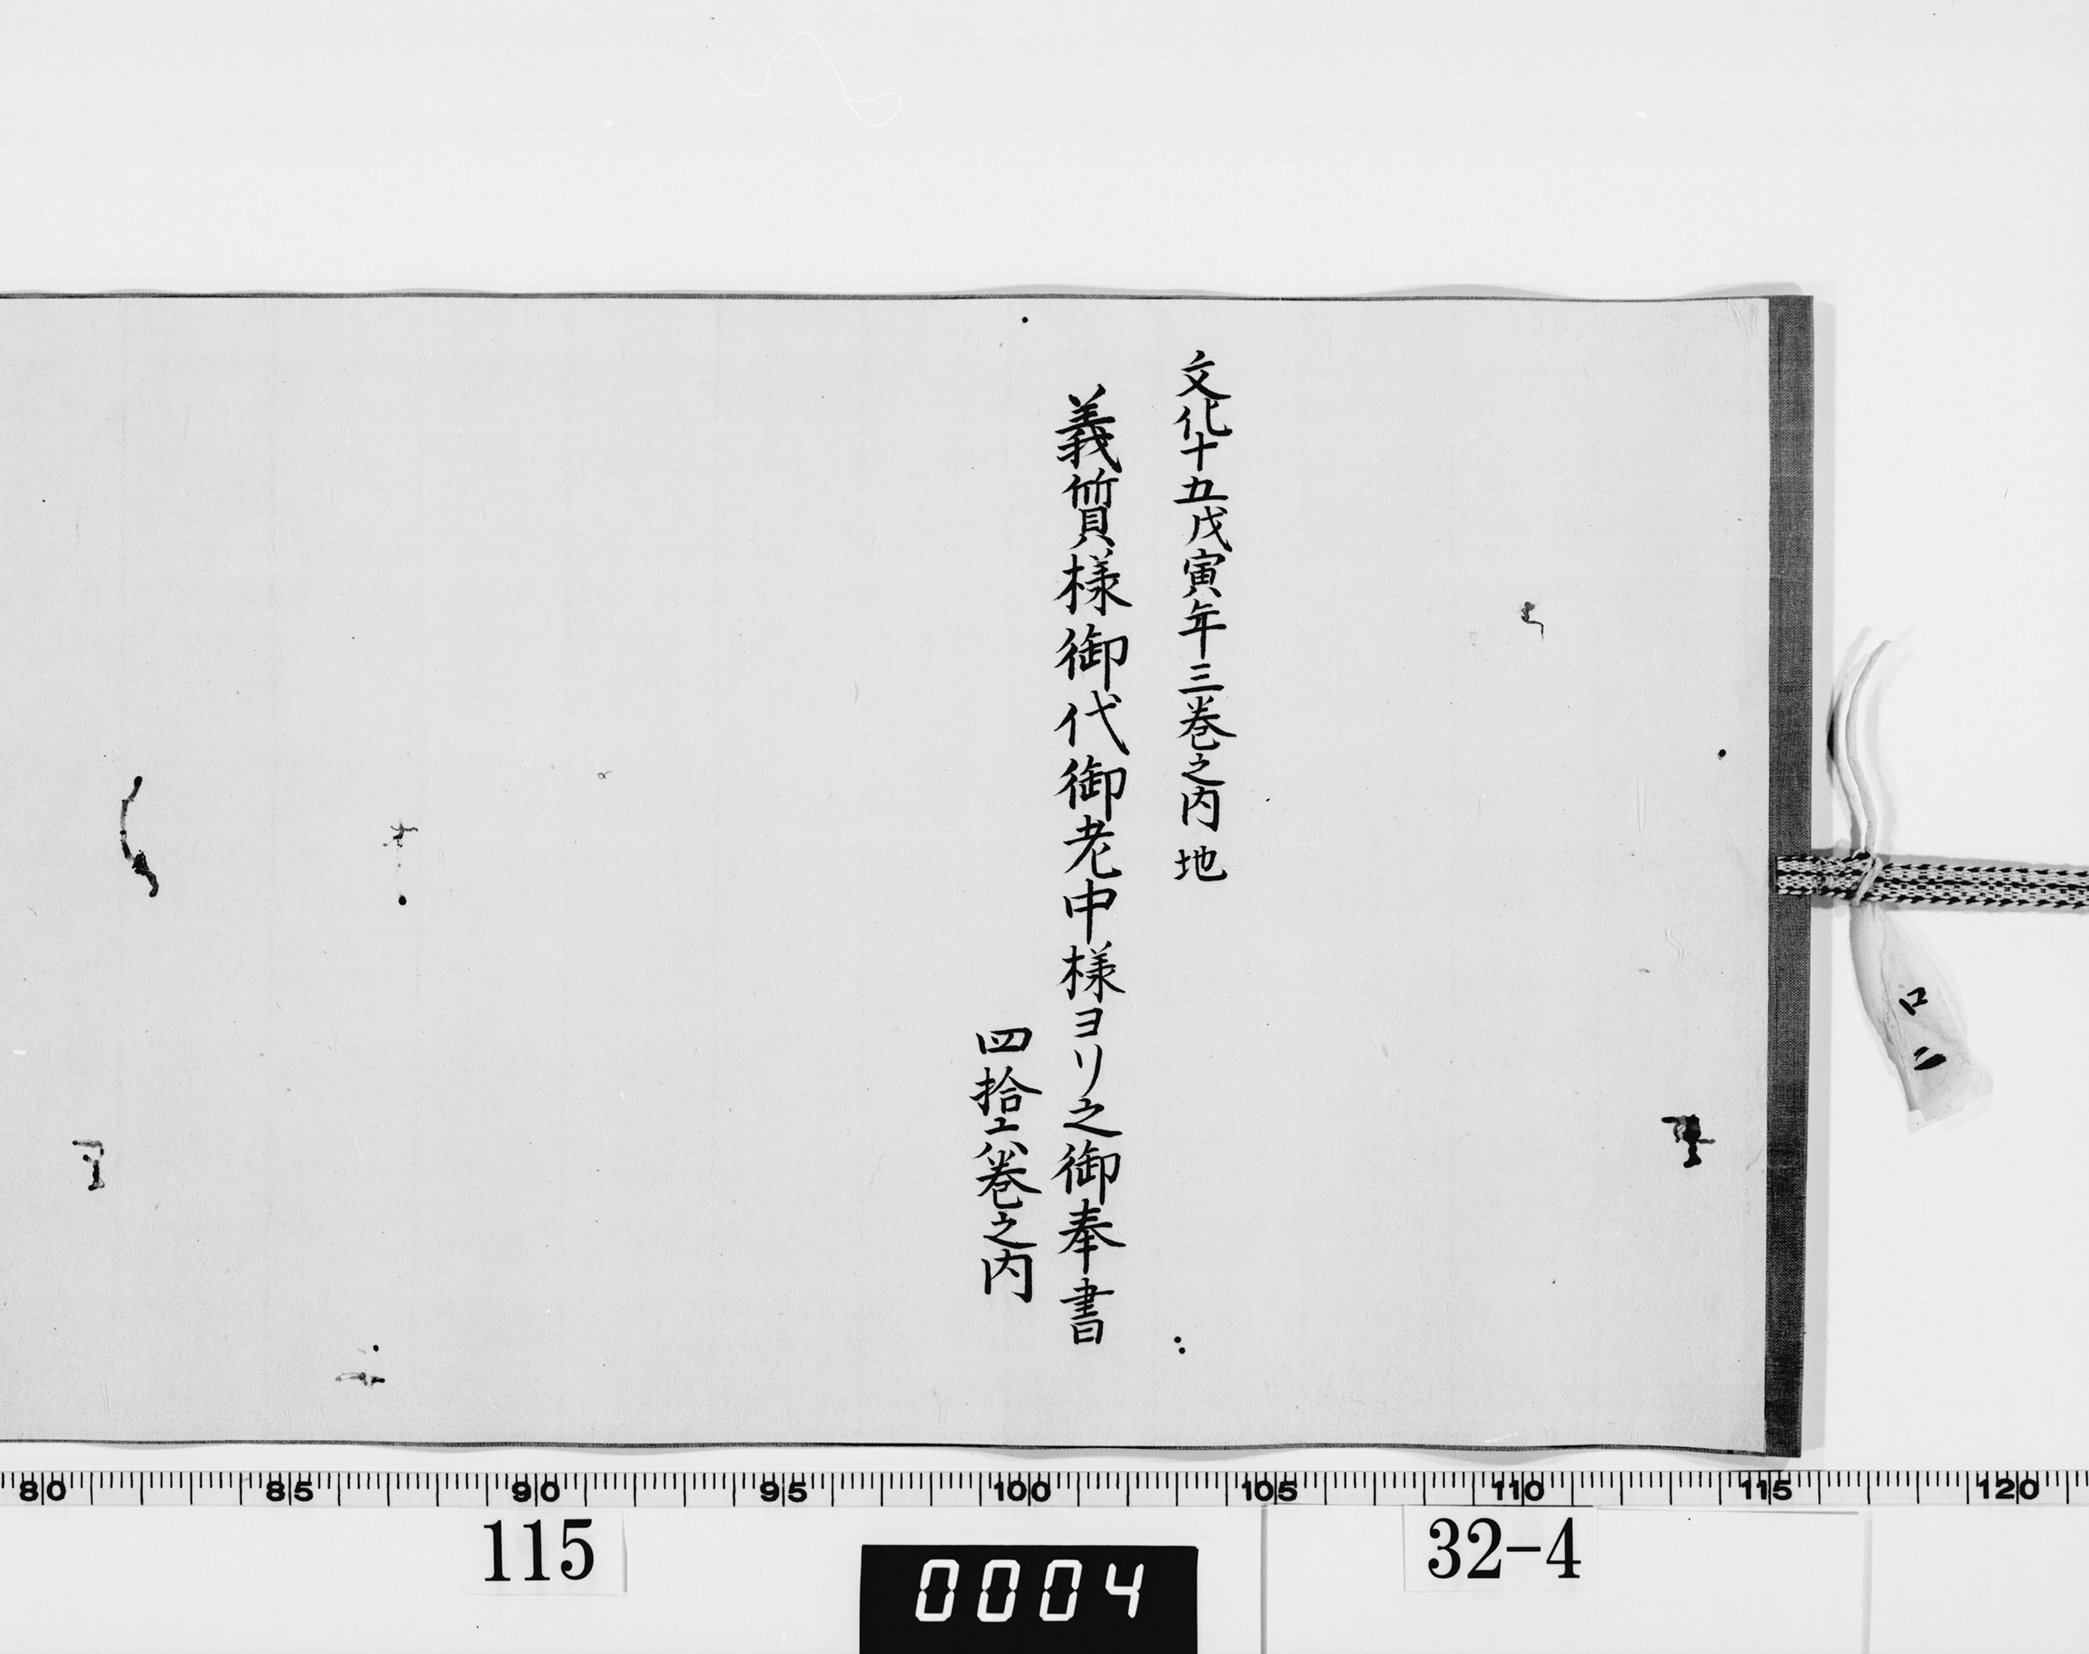 文化十五戊寅年三巻之内 地
義質様御代御老中様ヨリ之御奉書
四拾エ巻之内
ロ
二
80 85 90 95 100 105 110 115 120
115
32-4
0004